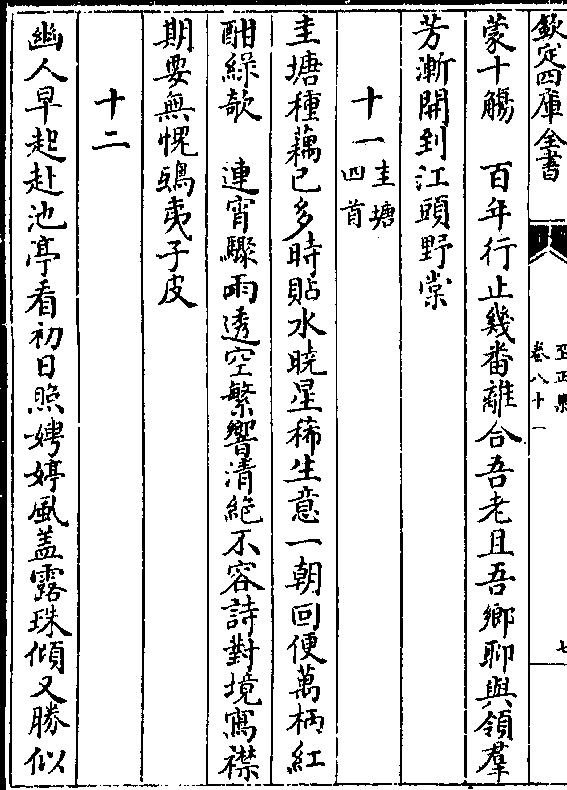 欽定四庫全書
至正集
卷八十一
七
蒙十觴　百年行止幾番離合吾老且吾鄉聊與領羣
芳漸開到江頭野棠
十一圭塘四首
圭塘種藕已多時貼水曉星稀生意一朝回便萬柄紅
酣綠欹　連宵驟雨透空繁響清絶不容詩對境寫襟
期要無愧鴟夷子皮
十二
幽人早起赴池亭看初日照娉婷風蓋露珠傾又勝似